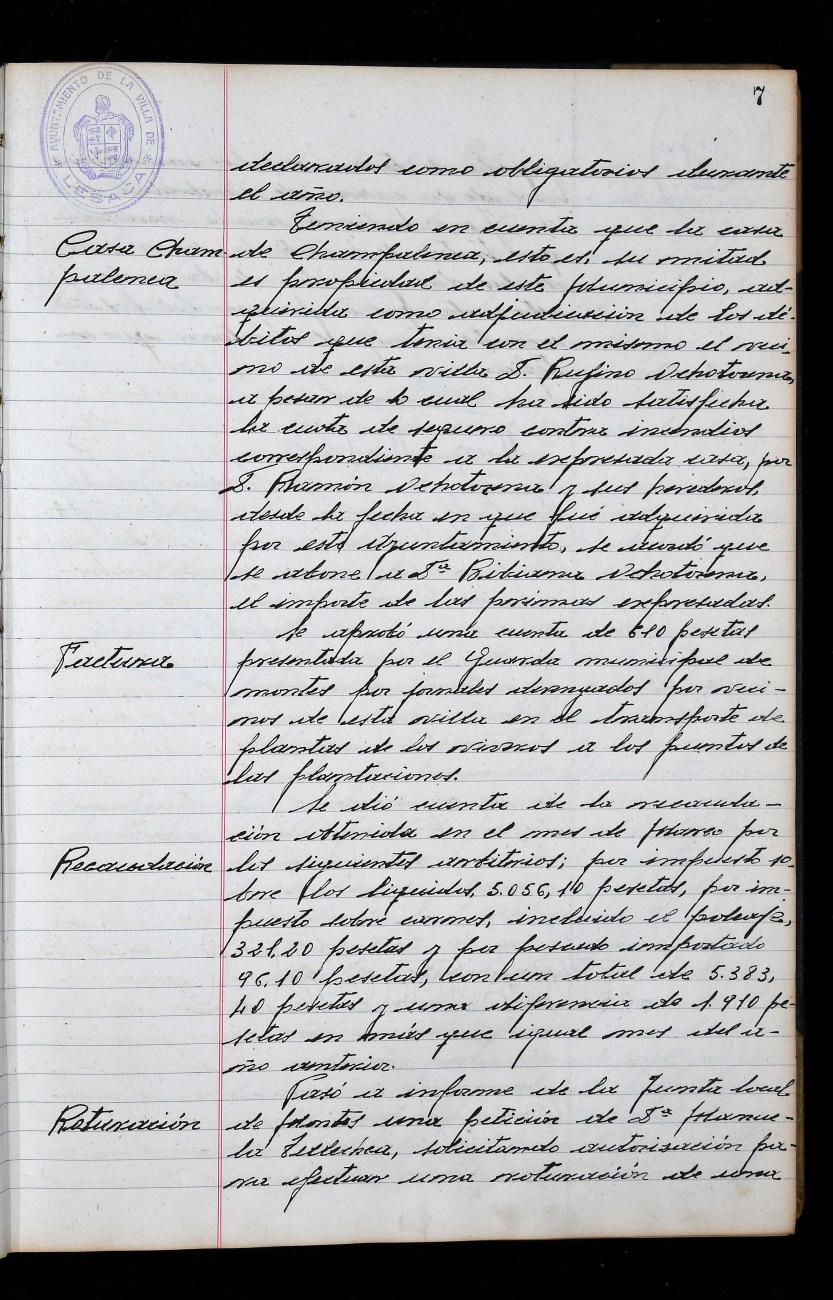 7
AYUNTAMIENTO DE LA VILLA DE
* LESACA *
declarados como obligatorios durante
el año.
Casa Cham-
palenea
Teniendo en cuenta que la casa
de Champalenea, esto es, su mitad
es propiedad de este Municipio, ad-
quirida como adjudicación de los dé-
bitos que tenia con el mismo el veci-
no de esta villa D. Rufino Ochotorena,
a pesar de lo cual ha sido satisfecha
la cuota de seguro contra incendios
correspondiente a la expresada casa, por
D. Ramón Ochotorena y sus herederos,
desde la fecha en que fué adquirida
por este Ayuntamiento, se acordó que
se abone a Dª Bibiana Ochotorena,
el importe de las primas expresadas.
Factura
Se aprobó una cuenta de 610 pesetas
presentada por el Guarda municipal de
montes por jornales devengados por veci-
nos de esta villa en el transporte de
plantas de los viveros a los puntos de
las plantaciones.
Recaudación
Se dió cuenta de la recauda-
ción obtenida en el mes de Marzo por
los siguientes arbitrios; por impuesto so-
bre los liquidos, 5.056,10 pesetas, por im-
puesto sobre carnes, incluido el
321,20 pesetas y por pescado importado
96,10 pesetas, con un total de 5.383,
40 pesetas y una diferencia de 1.910 pe-
setas en más que igual mes del a-
ño anterior.
Roturación
Pasó a informe de la Junta local
de Montes una petición de Dª Manue-
la Tellechea, solicitando autorización pa-
ra efectuar una roturación de una